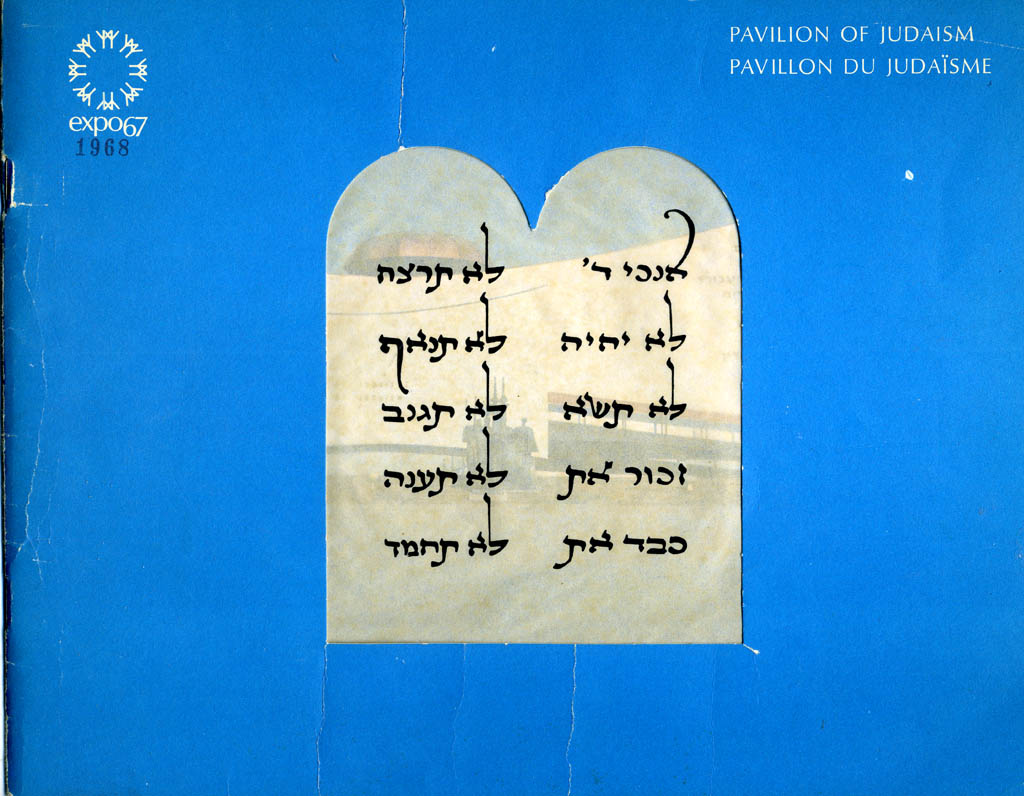 expo67
1968
PAVILION OF JUDAISM
PAVILLON DU JUDAÏSME
אנכי ד׳
לא יהיה
לא תשא
זכור את
כבד את
לא תרצח
לא תנאף
לא תגנב
לא תענה
לא תחמד